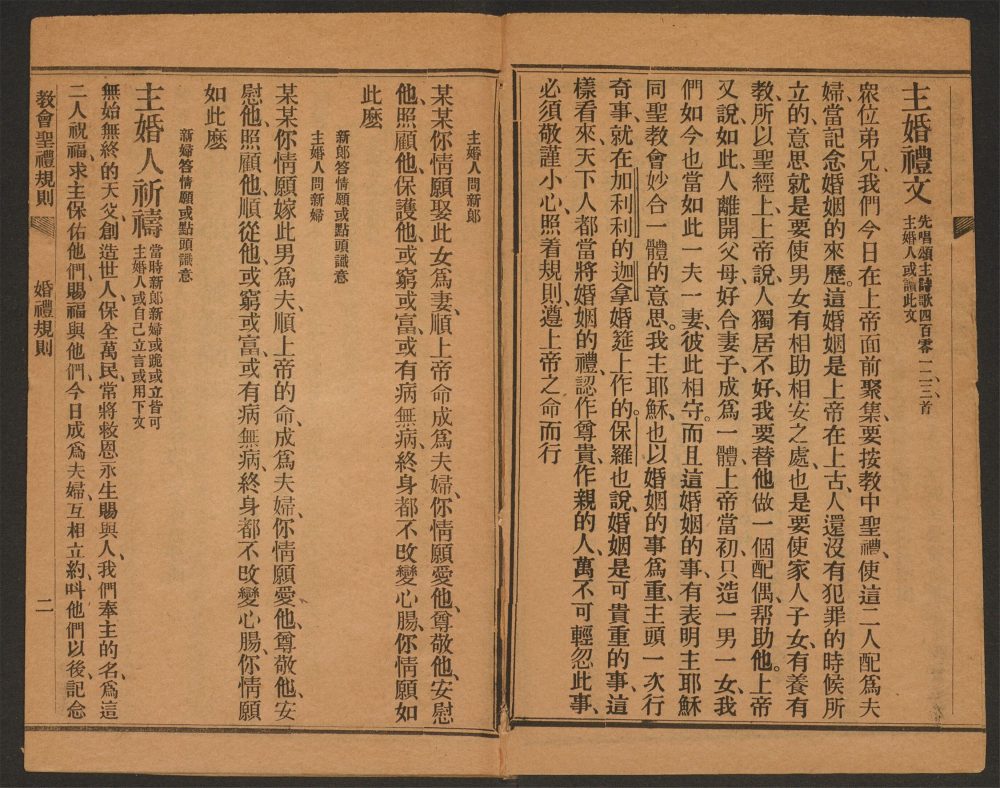 主婚禮文 先唱頌主詩歌四百零一、二、三首
主婚人或讀此文
衆位弟兄我們今日在上帝面前聚集、要按教中聖禮、使這二人配爲夫
婦、當記念婚姻的來歷。這婚姻是上帝在上古、人還沒有犯罪的時候所
立的、意思就是要使男女有相助相安之處、也是要使家人子女、有養有
教、所以聖經上、上帝說、人獨居不好、我要替他做一個配偶、帮助他。上帝
又說如此人離開父母好合妻子、成爲一體、上帝當初只造一男一女、我
們如今也當如此一夫一妻、彼此相守。而且這婚姻的事、有表明主耶穌
同聖教會妙合一體的意思。我主耶穌也以婚姻的事爲重、主頭一次行
奇事、就在加利利的迦拿婚筵上作的。保羅也說、婚姻是可貴重的事、這
樣看來、天下人都當將婚姻的禮、認作尊貴、作親的人、萬不可輕忽此事、
必須敬謹小心、照着規則、遵上帝之命而行
主婚人問新郎
某某你情願娶此女爲妻、順上帝命成爲夫婦、你情願愛他、尊敬他、安慰
他、照顧他、保護他、或窮或富、或有病無病、終身都不改變心腸、你情願如
此麽
新郎答情願或點頭識意
主婚人問新婦
某某你情願嫁此男爲夫、順上帝的命、成爲夫婦、你情願愛他、尊敬他、安
慰他、照顧他、順從他、或窮或富、或有病無病、終身都不改變心腸、你情願
如此麽
新婦答情願或點頭識意
主婚人祈禱 當時新郎新婦或跪或立皆可
主婚人或自己立言或用下文
無始無終的天父、創造世人、保全萬民、常將救恩永生賜與人、我們奉主的名、爲這
二人祝福、求主保佑他們、賜福與他們、今日成爲夫婦、互相立約、叫他們以後、記念
教會聖禮規則 婚禮規則 二